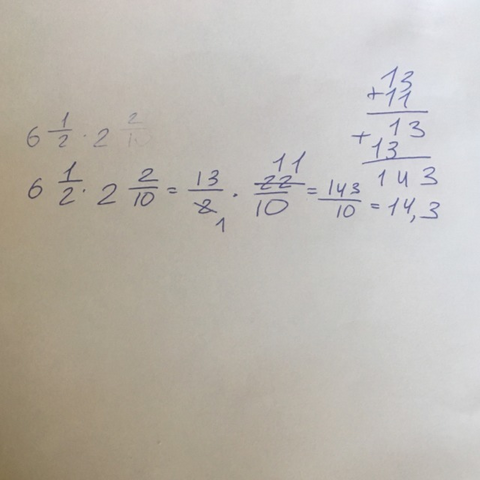 6 1/2 · 2 2/10
6 1/2 · 2 2/10 = 13/2 1 · 11 22/10 = 143/10 = 14,3
13
+11
13
+13
143